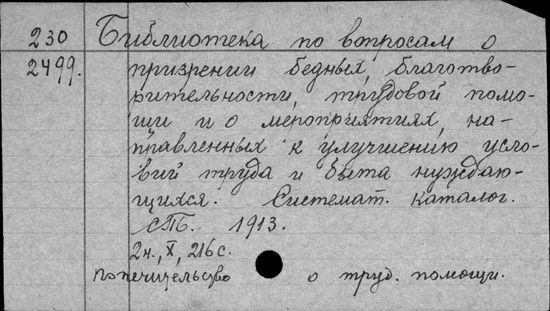 230 Библиотека по вопросам о
2499. призрении бедных, благотво-
рительности, трудовой помо-
щи и о мероприятиях, на-
правленных к улучшению усло-
вий труда и быта нуждаю-
щихся. Системат. каталог.
СПБ. 1913.
2н., X, 216 с.
Попечительство о труд. помощи.